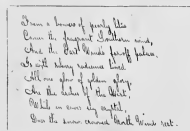 From a bower of pearly lilies
Comes the fragrant Southern wind,
And the East Winds far-off palace
Is with silvery radiance lined.
All one glow of golden glory
Are the halls of the West,
While in caves of crystal
Does the snow-crowned North Wind rest.